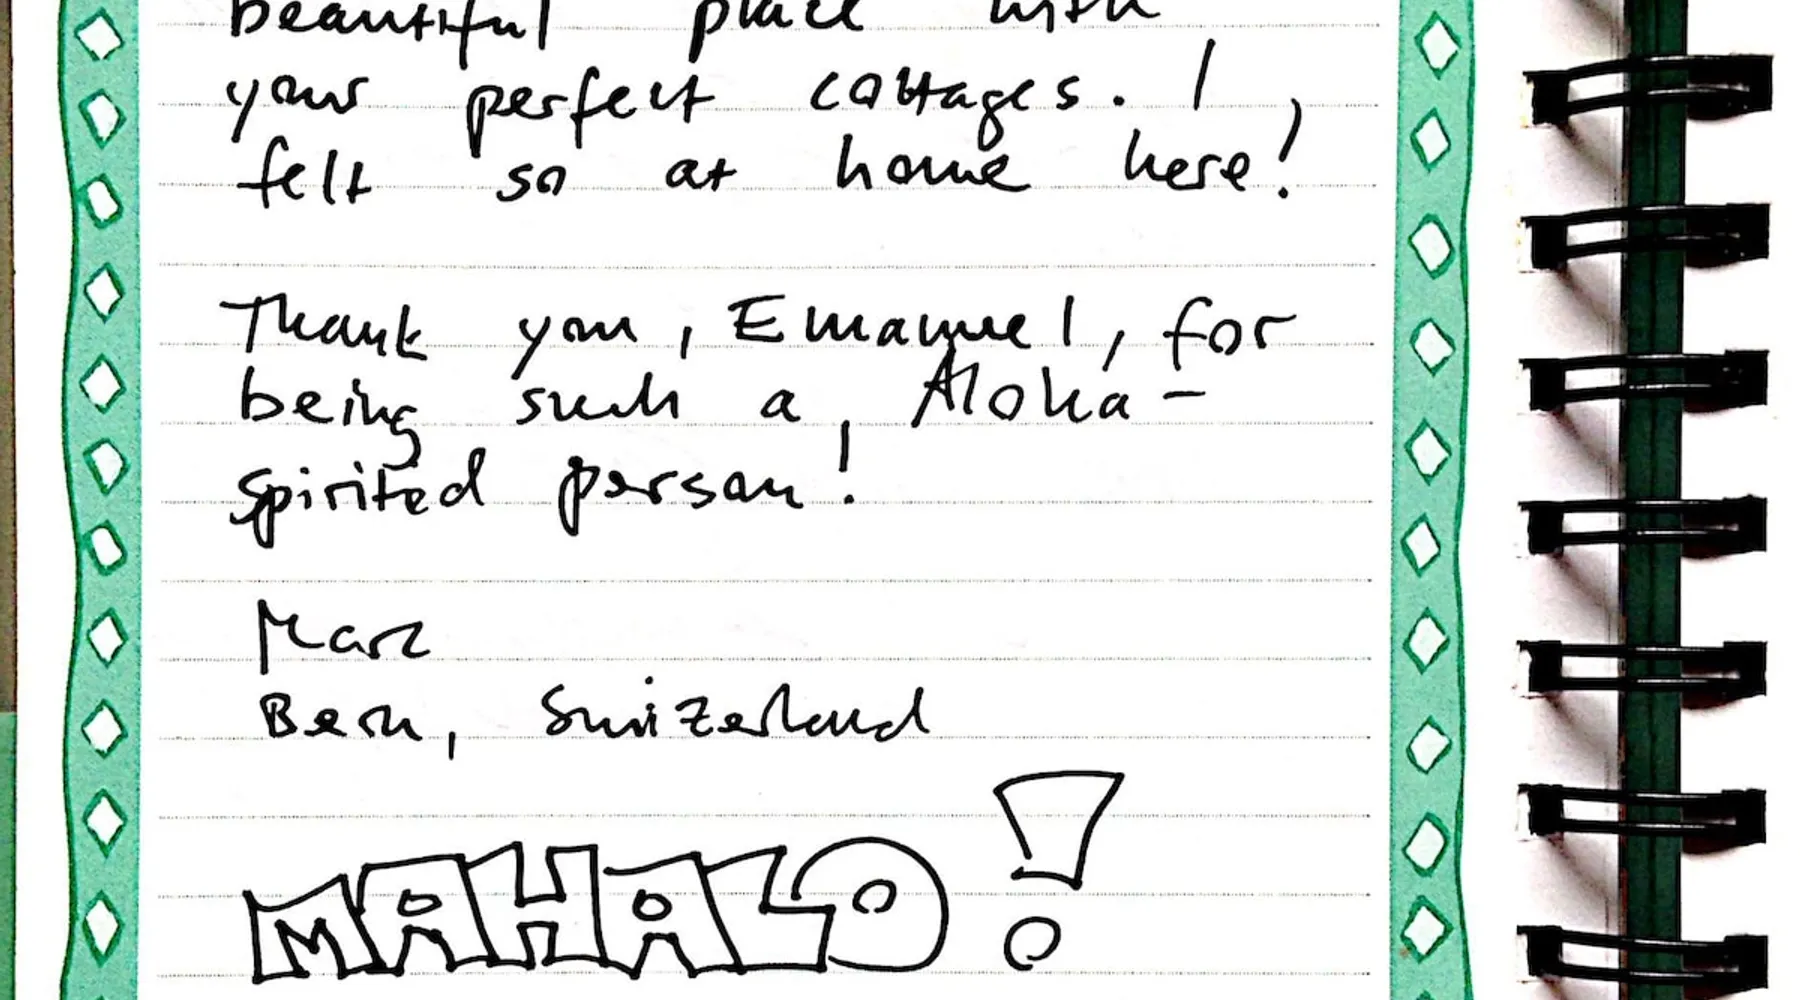 beautiful place with
your perfect cottages. I
felt so at home here!
Thank you, Emanuel, for
being such a Aloha-
spirited person!
Marc
Bern, Switzerland
MAHALO!